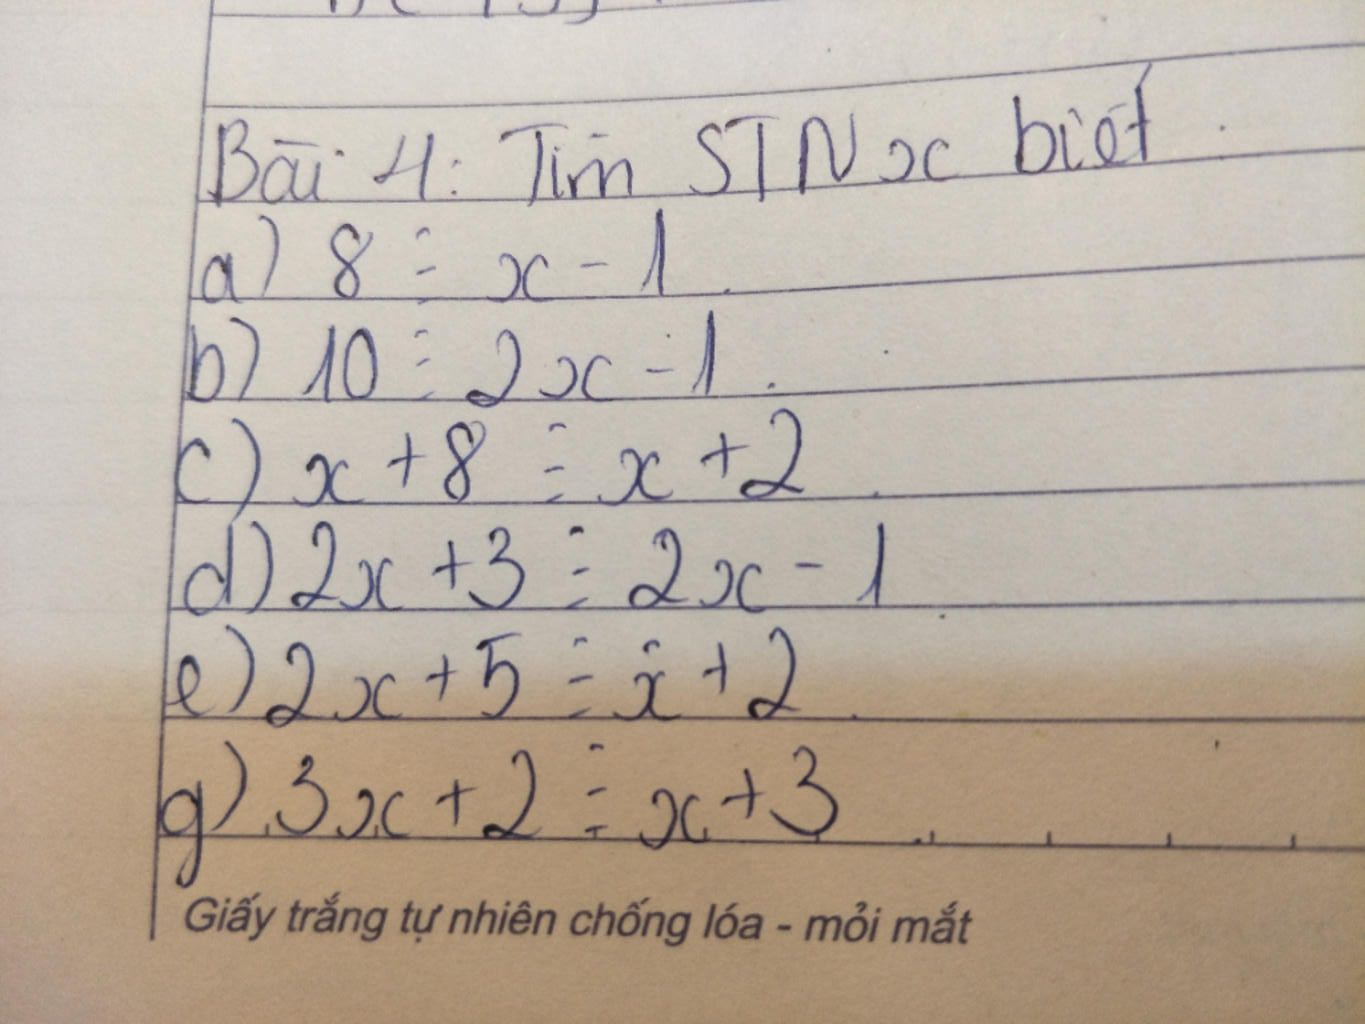 Bài 4: Tìm STN x biết
a) 8 ⋮ x - 1
b) 10 ⋮ 2x - 1
c) x + 8 ⋮ x + 2
d) 2x + 3 ⋮ 2x - 1
e) 2x + 5 ⋮ x + 2
g) 3x + 2 ⋮ x + 3
Giấy trắng tự nhiên chống lóa - mỏi mắt